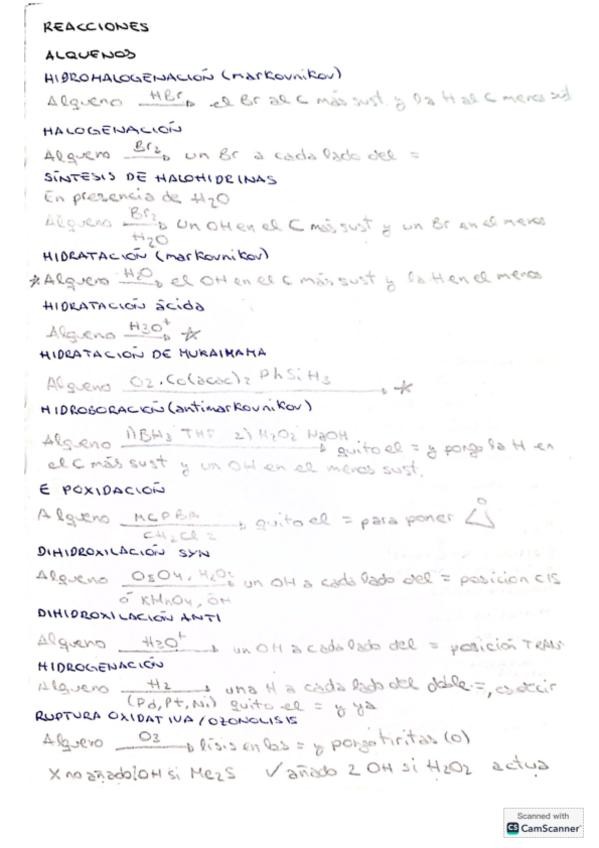 REACCIONES
ALQUENOS
HIDROHALOGENACIÓN (markovnikov)
Alqueno HBr el Br al C más sust y la H al C menos sust
HALOGENACIÓN
Alqueno Br2 un Br a cada lado del =
SÍNTESIS DE HALOHIDRINAS
En presencia de H2O
Alqueno Br2 un OH en el C más sust y un Br en el menos
H2O
HIDRATACIÓN (markovnikov)
* Alqueno H2O el OH en el C más sust y la H en el menos
HIDRATACIÓN ácida
Alqueno H3O+ *
HIDRATACIÓN DE MUKAIMAMA
Alqueno O2, Co(acac)2 PhSiH3 *
HIDROBORACIÓN (antimarkovnikov)
Alqueno 1) BH3 THF 2) H2O2 NaOH quito el = y pongo la H en
el C más sust y un OH en el menos sust.
EPOXIDACIÓN
Alqueno MCPBA quito el = para poner O
CH2Cl2
DIHIDROXILACIÓN SYN
Alqueno OsO4, H2O2 un OH a cada lado del = posición CIS
ó KMnO4, OH
DIHIDROXILACIÓN ANTI
Alqueno H3O+ un OH a cada lado del = posición TRANS
HIDROGENACIÓN
Alqueno H2 una H a cada lado del doble =, es decir
(Pd, Pt, Ni) quito el = y ya
RUPTURA OXIDATIVA/OZONOLISIS
Alqueno O3 lisis en los = y pongo tiritas (O)
X no añado OH si Me2S ✓ añado 2 OH si H2O2 actua
Scanned with
CS CamScanner